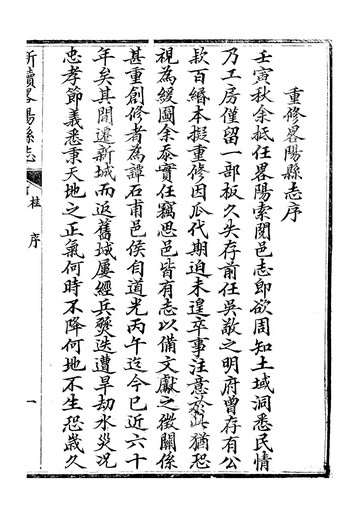 重修畧陽縣志序
壬寅秋余抵任畧陽索閱邑志即欲周知土域洞悉民情
乃工房僅留一部板久失存前任吳敬之明府曾存有公
款百緡本擬重修因瓜代期迫未遑卒事注意於此猶恐
視為緩圖余泰實任竊思邑皆有志以備文獻之徵關係
甚重創修者為譚石甫邑侯自道光丙午迄今已近六十
年矣其間遷新城而返舊城屢經兵燹迭遭旱劫水災況
忠孝節義悉秉天地之正氣何時不降何地不生恐歲久
新續畧陽縣志
杜序
一